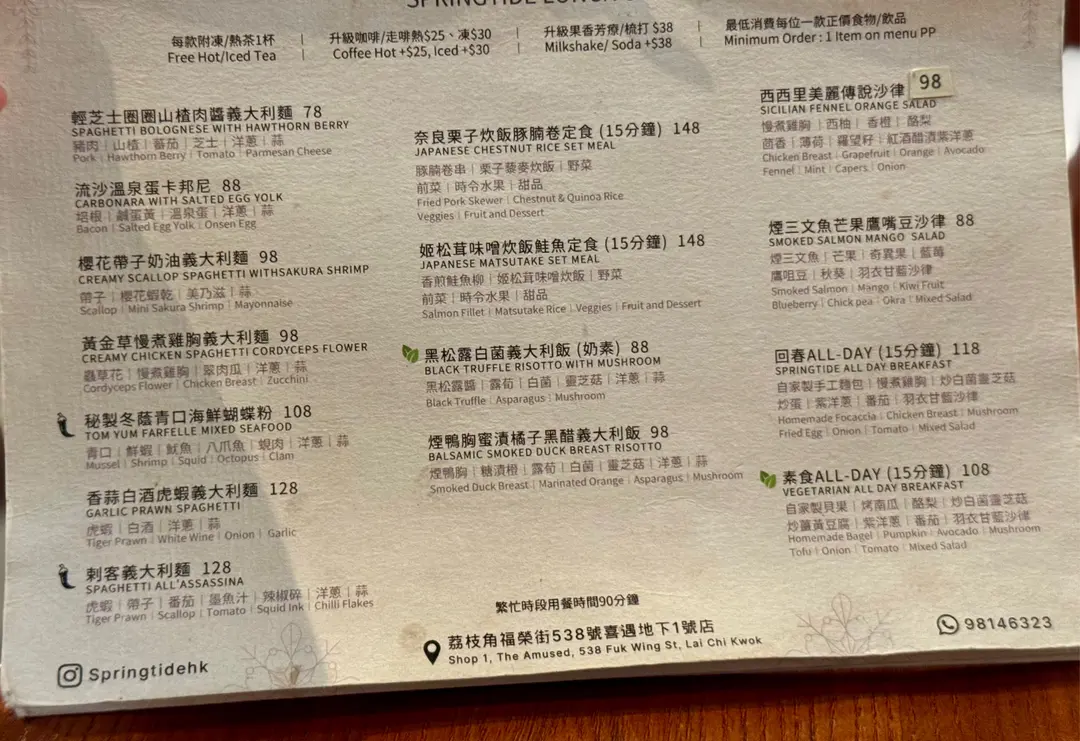 SPRINGTIDE LUNCH
每款附凍/熱茶1杯
Free Hot/Iced Tea
升級咖啡/走啡熱$25、凍$30
Coffee Hot +$25, Iced +$30
升級果香芳療/梳打 $38
Milkshake/ Soda +$38
最低消費每位一款正價食物/飲品
Minimum Order : 1 Item on menu PP
輕芝士圈圈山楂肉醬義大利麵 78
SPAGHETTI BOLOGNESE WITH HAWTHORN BERRY
豬肉｜山楂｜蕃茄｜芝士｜洋蔥｜蒜
Pork | Hawthorn Berry | Tomato | Parmesan Cheese
流沙溫泉蛋卡邦尼 88
CARBONARA WITH SALTED EGG YOLK
培根｜鹹蛋黃｜溫泉蛋｜洋蔥｜蒜
Bacon | Salted Egg Yolk | Onsen Egg
櫻花帶子奶油義大利麵 98
CREAMY SCALLOP SPAGHETTI WITHSAKURA SHRIMP
帶子｜櫻花蝦乾｜美乃滋｜蒜
Scallop | Mini Sakura Shrimp | Mayonnaise
黃金草慢煮雞胸義大利麵 98
CREAMY CHICKEN SPAGHETTI CORDYCEPS FLOWER
蟲草花｜慢煮雞胸｜翠肉瓜｜洋蔥｜蒜
Cordyceps Flower | Chicken Breast | Zucchini
秘製冬蔭青口海鮮蝴蝶粉 108
TOM YUM FARFELLE MIXED SEAFOOD
青口｜鮮蝦｜魷魚｜八爪魚｜蜆肉｜洋蔥｜蒜
Mussel | Shrimp | Squid | Octopus | Clam
香蒜白酒虎蝦義大利麵 128
GARLIC PRAWN SPAGHETTI
虎蝦｜白酒｜洋蔥｜蒜
Tiger Prawn | White Wine | Onion | Garlic
刺客義大利麵 128
SPAGHETTI ALL'ASSASSINA
虎蝦｜帶子｜番茄｜墨魚汁｜辣椒碎｜洋蔥｜蒜
Tiger Prawn | Scallop | Tomato | Squid Ink | Chilli Flakes
奈良栗子炊飯豚腩卷定食 (15分鐘) 148
JAPANESE CHESTNUT RICE SET MEAL
豚腩卷串｜栗子藜麥炊飯｜野菜
前菜｜時令水果｜甜品
Fried Pork Skewer | Chestnut & Quinoa Rice
Veggies | Fruit and Dessert
姬松茸味噌炊飯鮭魚定食 (15分鐘) 148
JAPANESE MATSUTAKE SET MEAL
香煎鮭魚柳｜姬松茸味噌炊飯｜野菜
前菜｜時令水果｜甜品
Salmon Fillet | Matsutake Rice | Veggies | Fruit and Dessert
黑松露白菌義大利飯 (奶素) 88
BLACK TRUFFLE RISOTTO WITH MUSHROOM
黑松露醬｜露荀｜白菌｜靈芝菇｜洋蔥｜蒜
Black Truffle | Asparagus | Mushroom
煙鴨胸蜜漬橘子黑醋義大利飯 98
BALSAMIC SMOKED DUCK BREAST RISOTTO
煙鴨胸｜糖漬橙｜露荀｜白菌｜靈芝菇｜洋蔥｜蒜
Smoked Duck Breast | Marinated Orange | Asparagus | Mushroom
西西里美麗傳說沙律 98
SICILIAN FENNEL ORANGE SALAD
慢煮雞胸｜西柚｜香橙｜酪梨
茴香｜薄荷｜羅望籽｜紅酒醋漬紫洋蔥
Chicken Breast | Grapefruit | Orange | Avocado
Fennel | Mint | Capers | Onion
煙三文魚芒果鷹嘴豆沙律 88
SMOKED SALMON MANGO SALAD
煙三文魚｜芒果｜奇異果｜藍莓
鷹咀豆｜秋葵｜羽衣甘藍沙律
Smoked Salmon | Mango | Kiwi Fruit
Blueberry | Chick pea | Okra | Mixed Salad
回春ALL-DAY (15分鐘) 118
SPRINGTIDE ALL DAY BREAKFAST
自家製手工麵包｜慢煮雞胸｜炒白菌靈芝菇
炒蛋｜紫洋蔥｜番茄｜羽衣甘藍沙律
Homemade Focaccia | Chicken Breast | Mushroom
Fried Egg | Onion | Tomato | Mixed Salad
素食ALL-DAY (15分鐘) 108
VEGETARIAN ALL DAY BREAKFAST
自家製貝果｜烤南瓜｜酪梨｜炒白菌靈芝菇
炒薑黃豆腐｜紫洋蔥｜番茄｜羽衣甘藍沙律
Homemade Bagel | Pumpkin | Avocado | Mushroom
Tofu | Onion | Tomato | Mixed Salad
繁忙時段用餐時間90分鐘
Springtidehk
荔枝角福榮街538號喜遇地下1號店
Shop 1, The Amused, 538 Fuk Wing St, Lai Chi Kwok
98146323